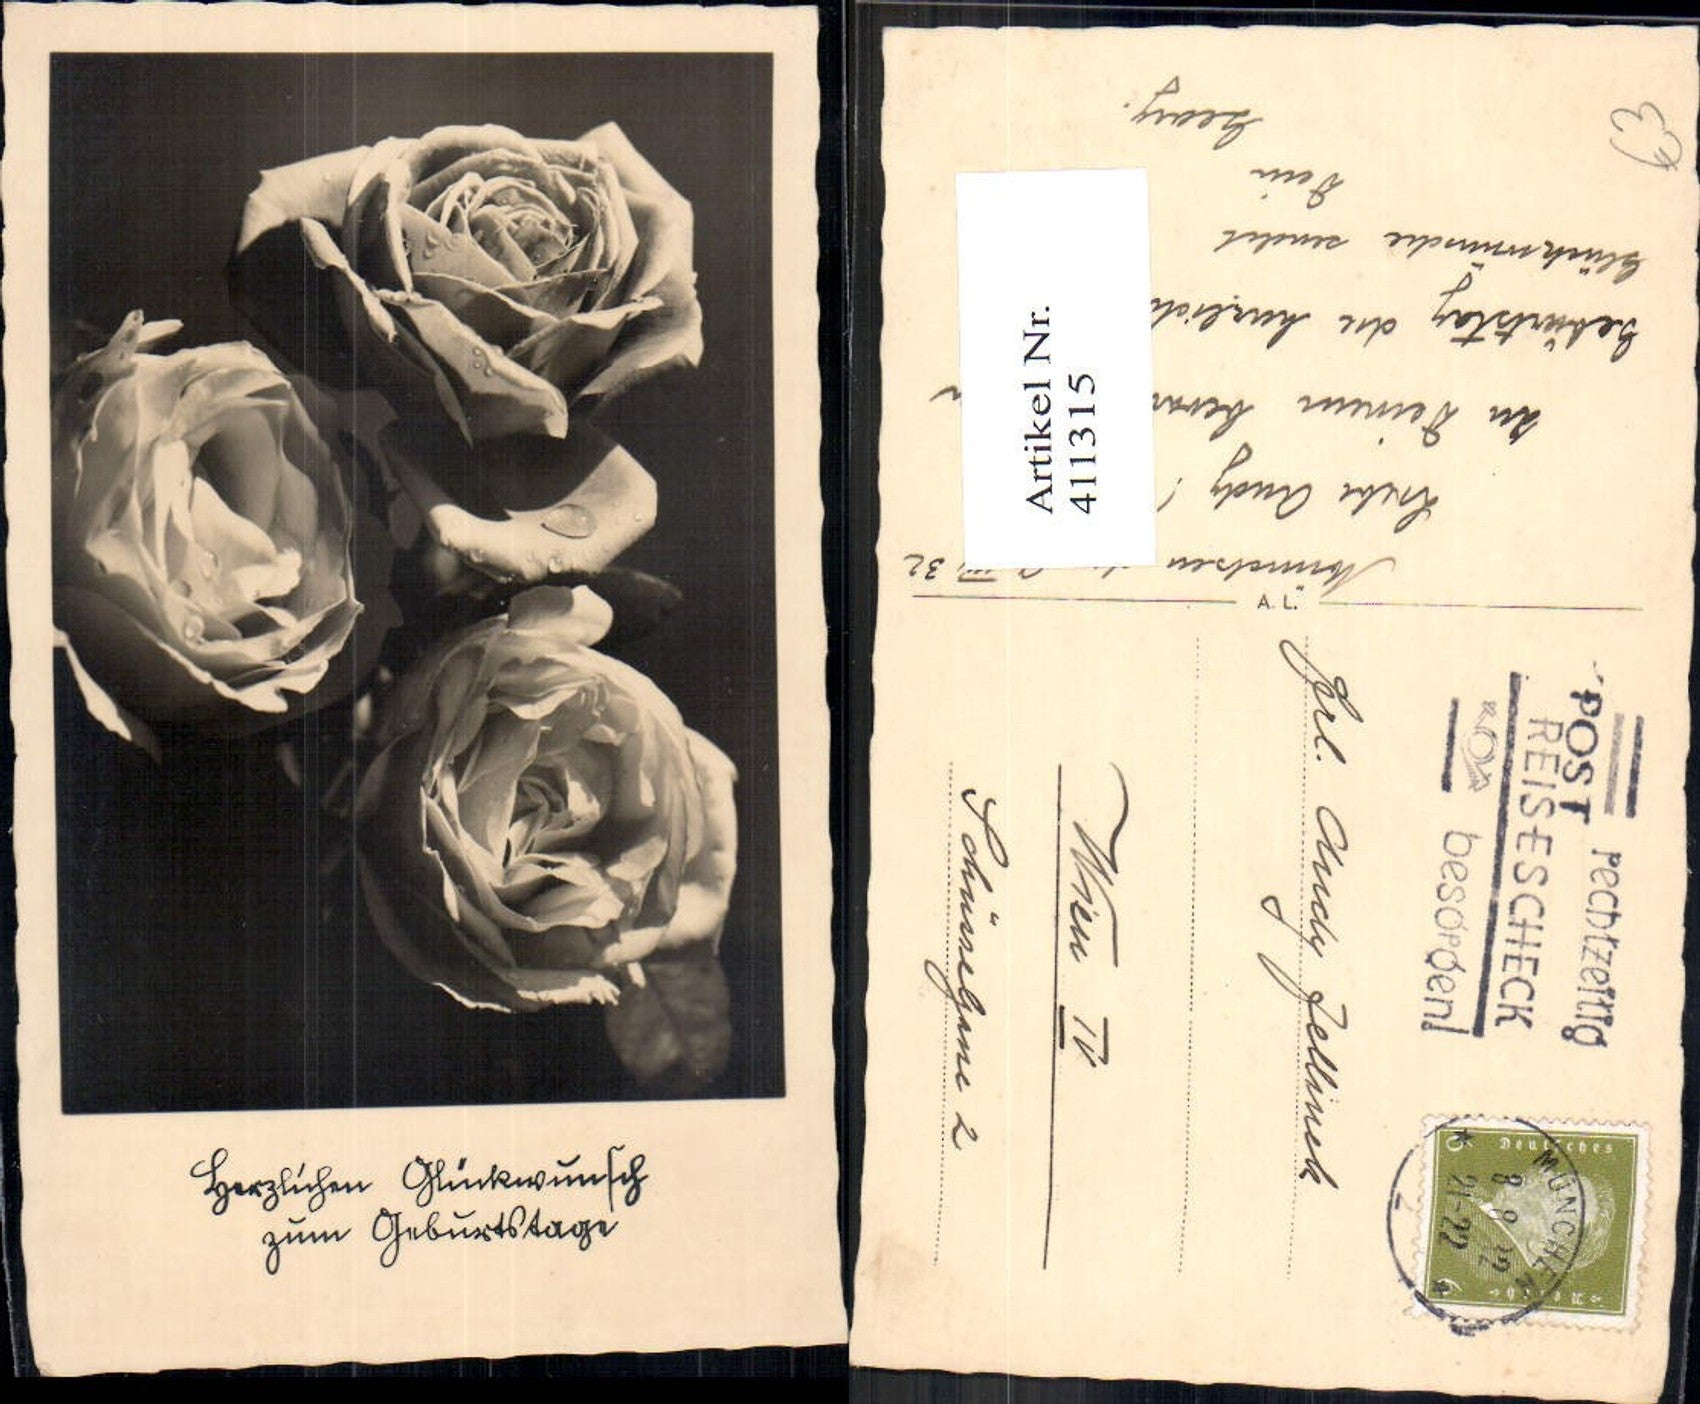 Herzlichen Glückwunsch
zum Geburtstage
32
Liebe Andy!
zu Deinem
Geburtstag die herzlich
Glückwünsche sendet
Dein
Georg.
Artikel Nr.
411315
A. L.
Frl. Andy Jellinek
Wien IV
Schüsselgasse 2
POST rechtzeitig
REISESCHECK
besorgen!
Deutsches Reich
6 6
MÜNCHEN
8 8 32
21-22
2